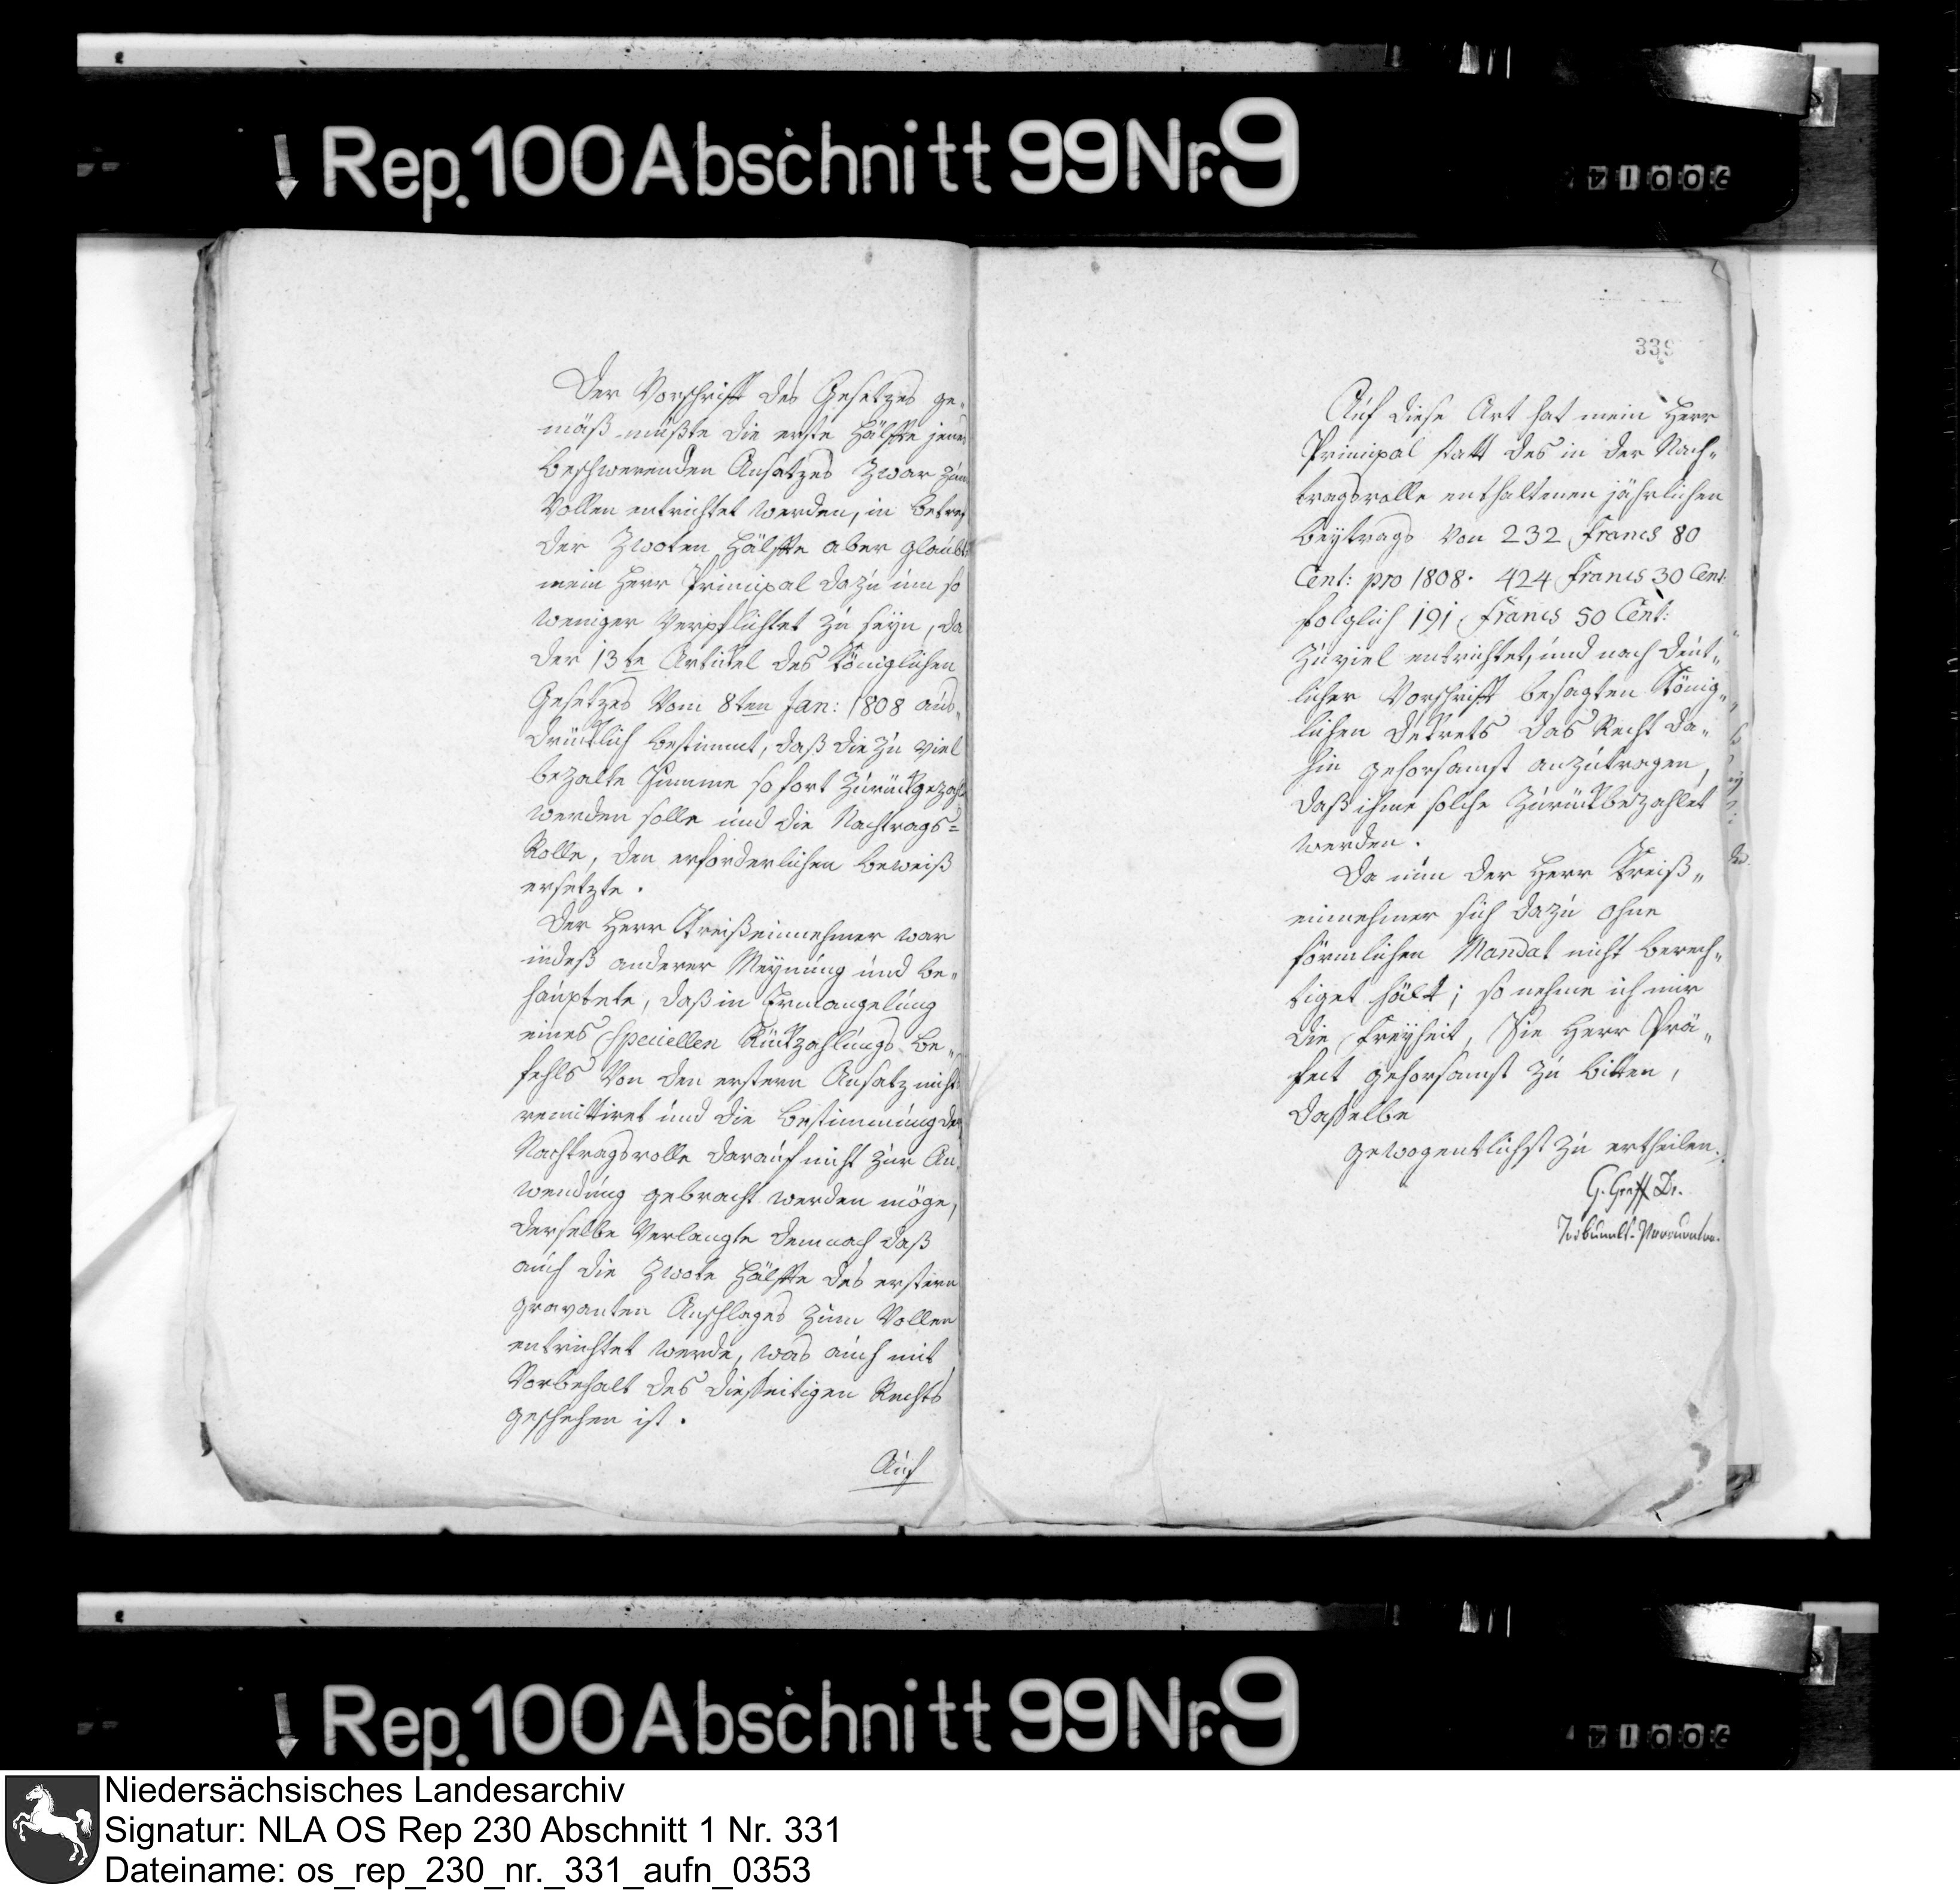 Rep. 100 Abschnitt 99 Nr. 9
Der Vorschrift des Gesetzes ge„
mäß müßte die erste Hälfte jenes
beschwerenden Ansatzes zwar zum
Vollen entrichtet werden, in Betref
der zwoten Hälfte aber glaubt
mein Herr Principal dazu um so
weniger verpflichtet zu seyn, da
der 13te Artickel des Königlichen
Gesetzes vom 8ten Jan: 1808 aus„
drücklich bestimmt, daß die zu viel
bezalte Summe sofort zurückgezahlt
werden solle und die Nachtrags=
Rolle, den erforderlichen Beweiß
ersetzte.
Der Herr Kreißeinnehmer war
indeß anderer Meynung und be„
hauptete, daß in Ermangelung
eines speciellen Rückzahlungs Be„
fehls von den erstern Ansatz nichts
remittiret und die Bestimmung der
Nachtragsrolle darauf nicht zur An„
wendung gebracht werden möge,
derselbe verlangte demnach daß
auch die zwote Hälfte des erstern
gravanten Anschlages zum Vollen
entrichtet werde, was auch mit
Vorbehalt des diesseitigen Rechts
geschehen ist.
Auf
339
Auf diese Art hat mein Herr
Principal statt des in der Nach„
tragsrolle enthaltenen jährlichen
Beytrags von 232 Francs 80
Cent: pro 1808. 424 Francs 30 Cent:
folglich 191 Francs 50 Cent:
zuviel entrichtet, und nach deut„
licher Vorschrift besagten König„
lichen Dekrets das Recht da„
hin gehorsamst anzutragen,
daß ihme solche zurückbezahlet
werden.
Da nun der Herr Kreiß„
einnehmer sich dazu ohne
förmlichen Mandat nicht berech„
tiget hält; so nehme ich mir
die Freyheit, Sie Herr Prä„
fect gehorsamst zu bitten,
dasselbe
gewogentlichst zu ertheilen.
G. Graff Dr.
Tribunals-Procurator.
Rep. 100 Abschnitt 99 Nr. 9
Niedersächsisches Landesarchiv
Signatur: NLA OS Rep 230 Abschnitt 1 Nr. 331
Dateiname: os_rep_230_nr._331_aufn_0353